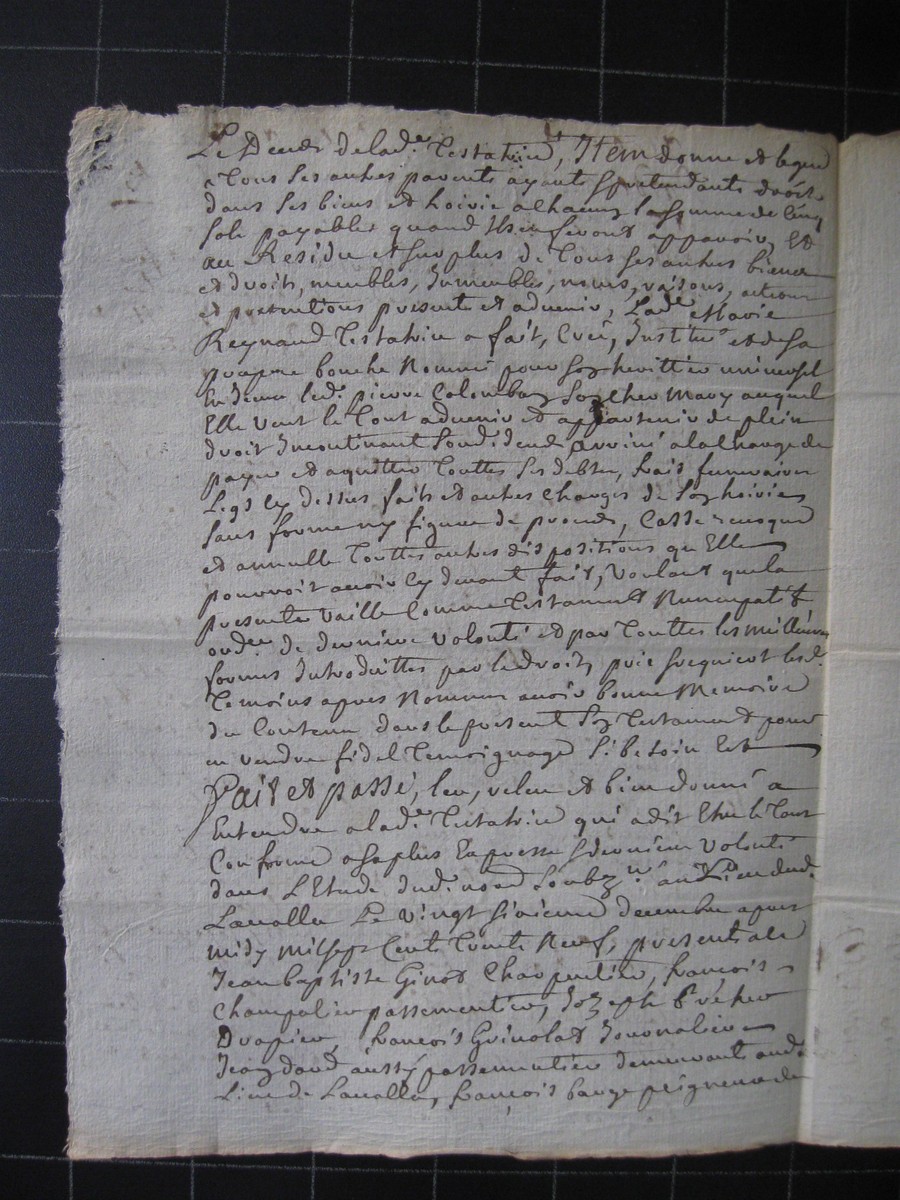 Le deces de lad.e Testatrice, Item donne et legue
a Tous ses autres parents ayants & pretendants droit
dans ses biens et hoirie a Chacun la somme de Cinq
sols payables quand Ils en feront apparoir, Et
au Residu et surplus de Tous ses autres biens
et droits, meubles, Immeubles, noms, raisons, actions
et pretentions presents et advenir, Lad.e Marie
Reynaud Testatrice a fait, Créé, Institué et de sa
propre bouche Nommé pour soy heritier universel
led. pierre Colomban soy cher Mary auquel
Elle veut le Tout advenir et appartenir de plein
droit Incontinant sondit deces arrivé a la Charge de
payer et aquitter Touttes ses debtes, frais funeraires
Legs cy dessus faits et autres Charges de soy hoirie
sans forme ny figure de proces, Casse revoque
et annulle Touttes autres dispositions qu Elle
pourroit avoir cy devant fait, Voulant que la
presente vaille Comme Testament Nuncupatif
ord.re de derniere volonté et par Touttes les meilleures
formes Introduittes par le droit, prie & requiert les d.
Temoins apres Nommes avoir bonne Memoire
du Contenu dans le present soy Testament pour
en rendre fidel Temoignage si besoin Est
Fait et passé, leu, releu et bien donné a
Entendre a lad.e Testatrice qui a dit Etre le Tout
Conforme a sa plus Expresse & derniere Volonté
dans L'Etude dud. no.re soubz.né au Lieu dud.
Lavalla Le vingt sixieme decembre apres
midy mil sept Cents Trente Neuf, presents a ce
Jean baptiste Ginot Charpentier, françois
Champalier passementier, Jozeph bréher
Drapier, françois Grivolat Journalier
aussy passementier demeurants aud.
Lieu de Lavalla, françois bauge peigneur de